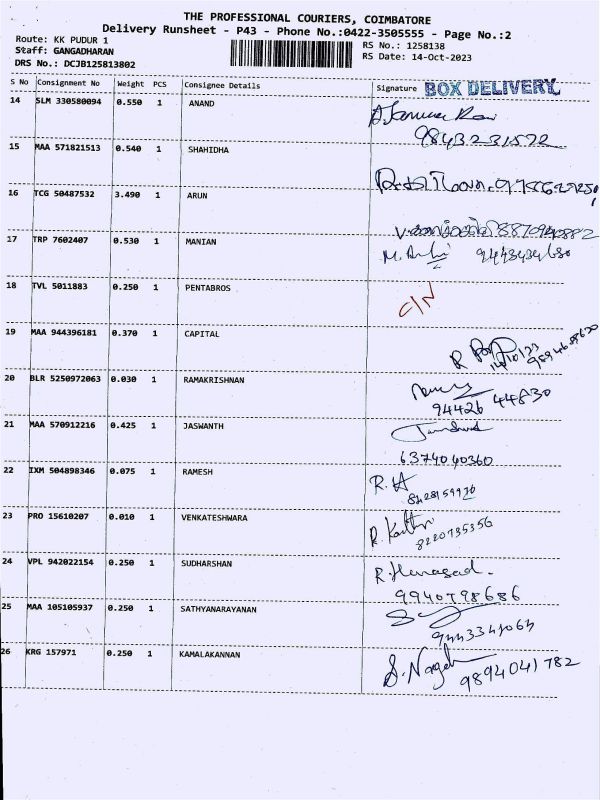 THE PROFESSIONAL COURIERS, COIMBATORE
Delivery Runsheet - P43 - Phone No.:0422-3505555 - Page No.:2
Route: KK PUDUR 1 RS No.: 1258138
Staff: GANGADHARAN RS Date: 14-Oct-2023
DRS No.: DCJB125813802
S No Consignment No Weight PCS Consignee Details Signature BOX DELIVERY
14 SLM 330580094 0.550 1 ANAND
9843231572
15 MAA 571821513 0.540 1 SHAHIDHA
16 TCG 50487532 3.490 1 ARUN
8870940882
17 TRP 7602407 0.530 1 MANIAN
M.
18 TVL 5011883 0.250 1 PENTABROS
C/N
19 MAA 944396181 0.370 1 CAPITAL
R 14/10/23
20 BLR 5250972063 0.030 1 RAMAKRISHNAN
94426 44830
21 MAA 570912216 0.425 1 JASWANTH
6374040360
22 IXM 504898346 0.075 1 RAMESH
R.
23 PRO 15610207 0.010 1 VENKATESHWARA
R. 8220735356
24 VPL 942022154 0.250 1 SUDHARSHAN
R.
9940798686
25 MAA 105105937 0.250 1 SATHYANARAYANAN
26 KRG 157971 0.250 1 KAMALAKANNAN
9894041782